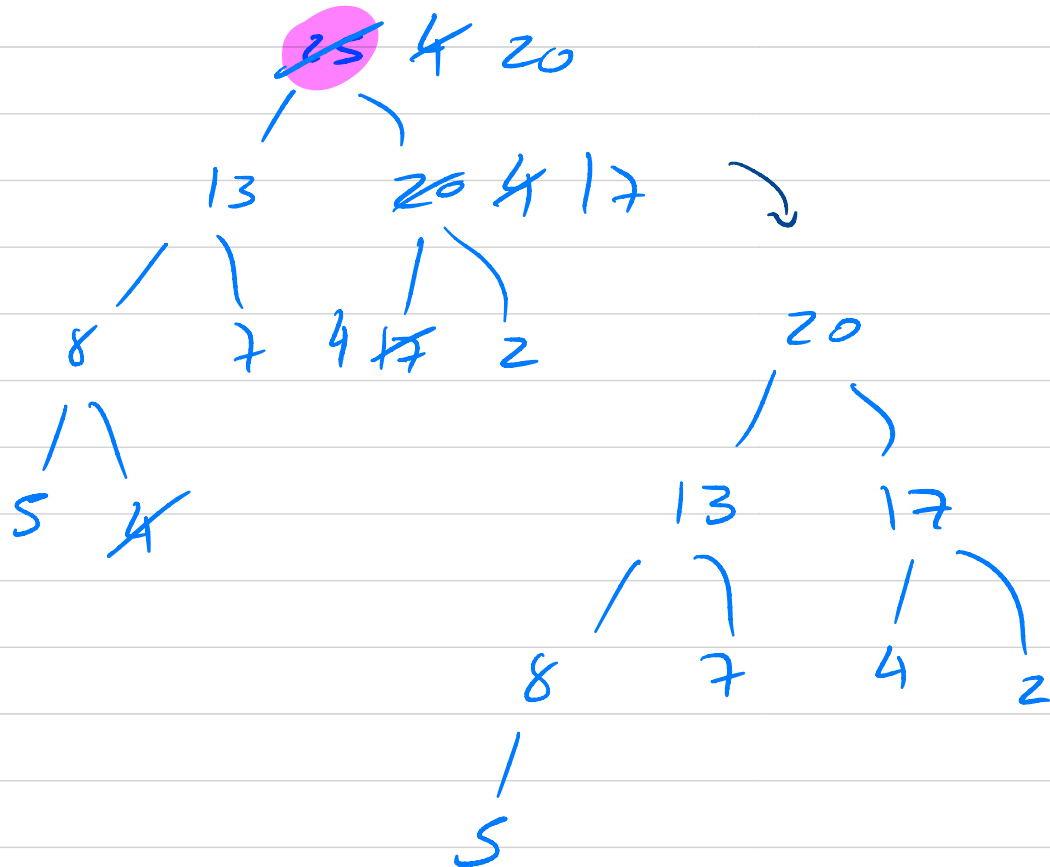 25 4 20
13 20 4 17
8 7 4 17 2
20
5 4
13 17
8 7 4 2
5